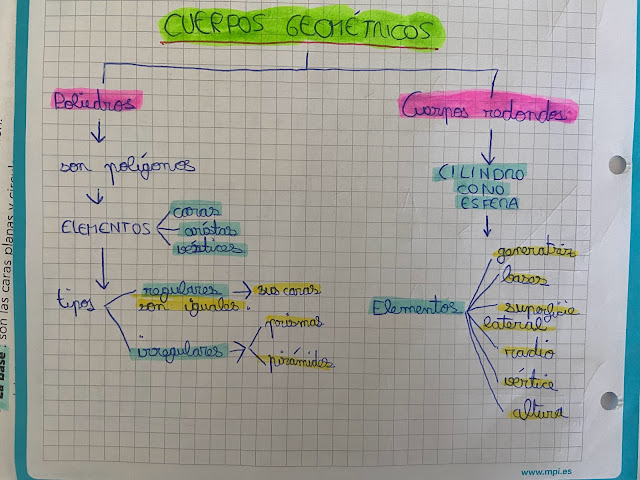 CUERPOS GEOMÉTRICOS
Poliedros
son polígonos
ELEMENTOS
caras
aristas
vértices
tipos
regulares → sus caras
son iguales.
irregulares
prismas
pirámides
Cuerpos redondos
CILINDRO
CONO
ESFERA
Elementos
generatriz
bases
superficie
lateral
radio
vértice
altura
La base: son las caras planas y
www.mpi.es